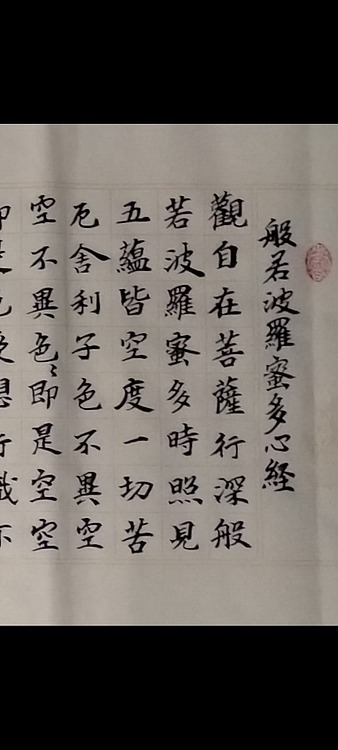 般若波羅蜜多心経
觀自在菩薩行深般
若波羅蜜多時照見
五蘊皆空度一切苦
厄舍利子色不異空
空不異色〻即是空空